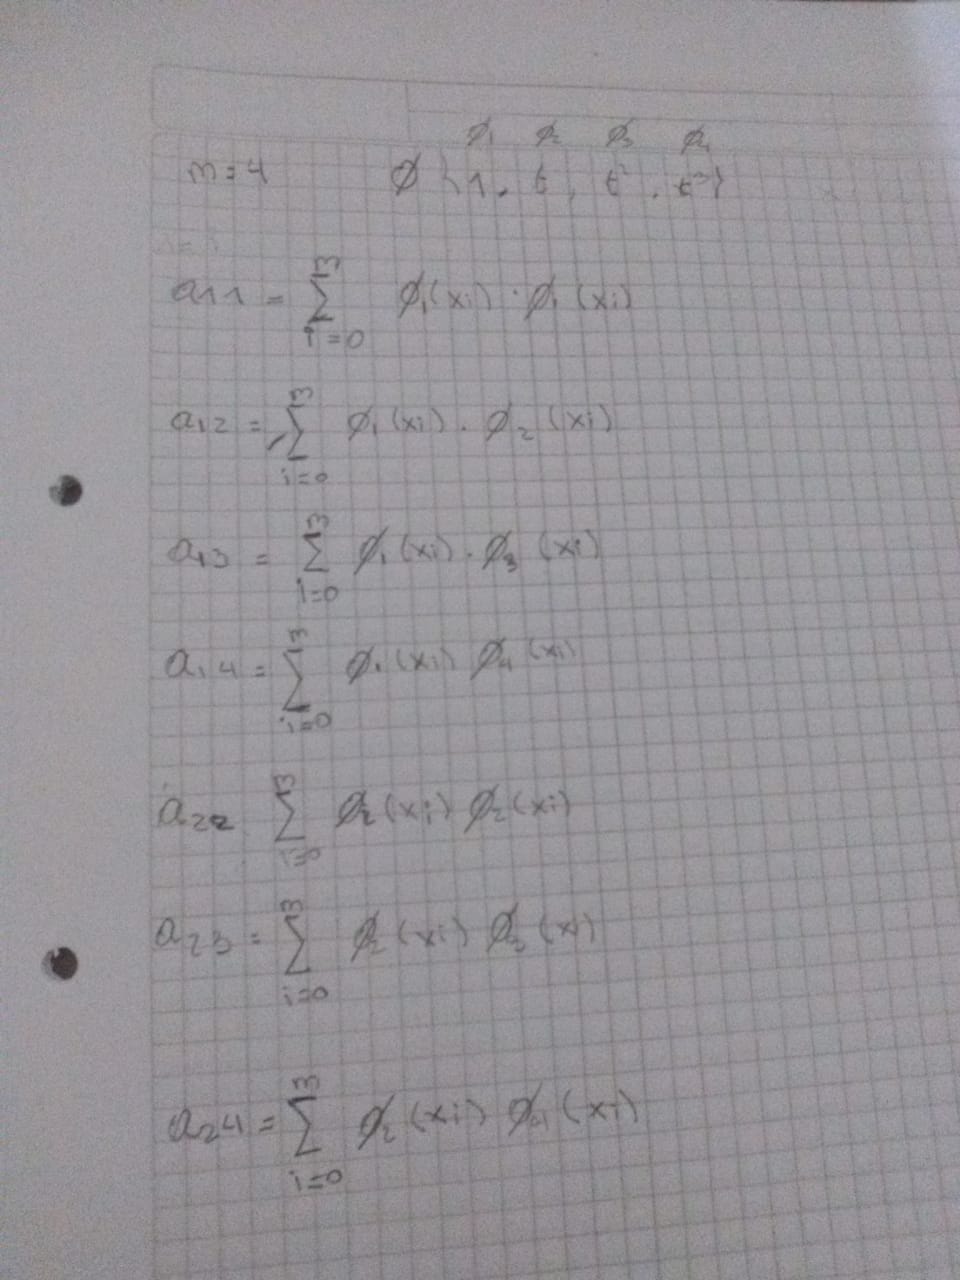 ϕ₁ ϕ₂ ϕ₃ ϕ₄
m=4 ϕ {1, t, t², t³}
a₁₁ = ∑ᵢ₌₀³ ϕ₁(xi) · ϕ₁(xi)
a₁₂ = ∑ᵢ₌₀³ ϕ₁(xi) · ϕ₂(xi)
a₁₃ = ∑ᵢ₌₀³ ϕ₁(xi) · ϕ₃(xi)
a₁₄ = ∑ᵢ₌₀³ ϕ₁(xi) ϕ₄(xi)
a₂₂ ∑ᵢ₌₀³ ϕ₂(xi) ϕ₂(xi)
a₂₃ = ∑ᵢ₌₀³ ϕ₂(xi) ϕ₃(xi)
a₂₄ = ∑ᵢ₌₀³ ϕ₂(xi) ϕ₄(xi)